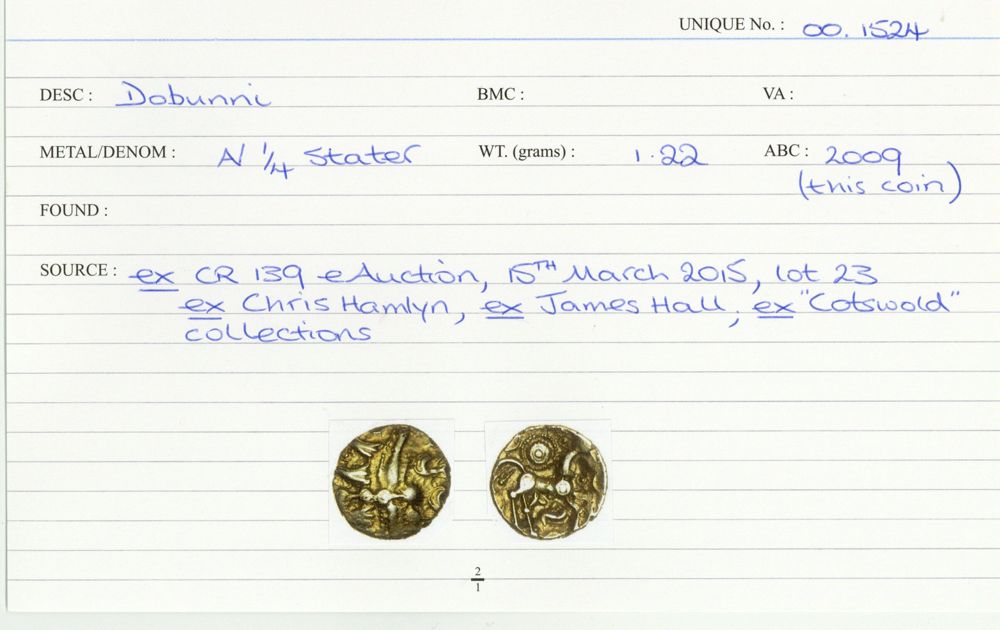 UNIQUE No. : 00.1524
DESC : Dobunni BMC : VA :
METAL/DENOM : AV 1/4 Stater WT. (grams) : 1.22 ABC : 2009
(this coin)
FOUND :
SOURCE : ex CR 139 eAuction, 15TH March 2015, lot 23
ex Chris Hamlyn, ex James Hall, ex "Cotswold"
collections
2
1